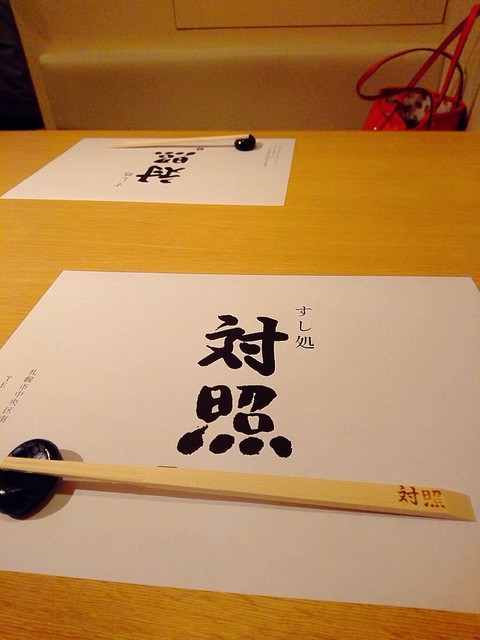 すし処
対照
札幌市中央区南
TE
対照
対照